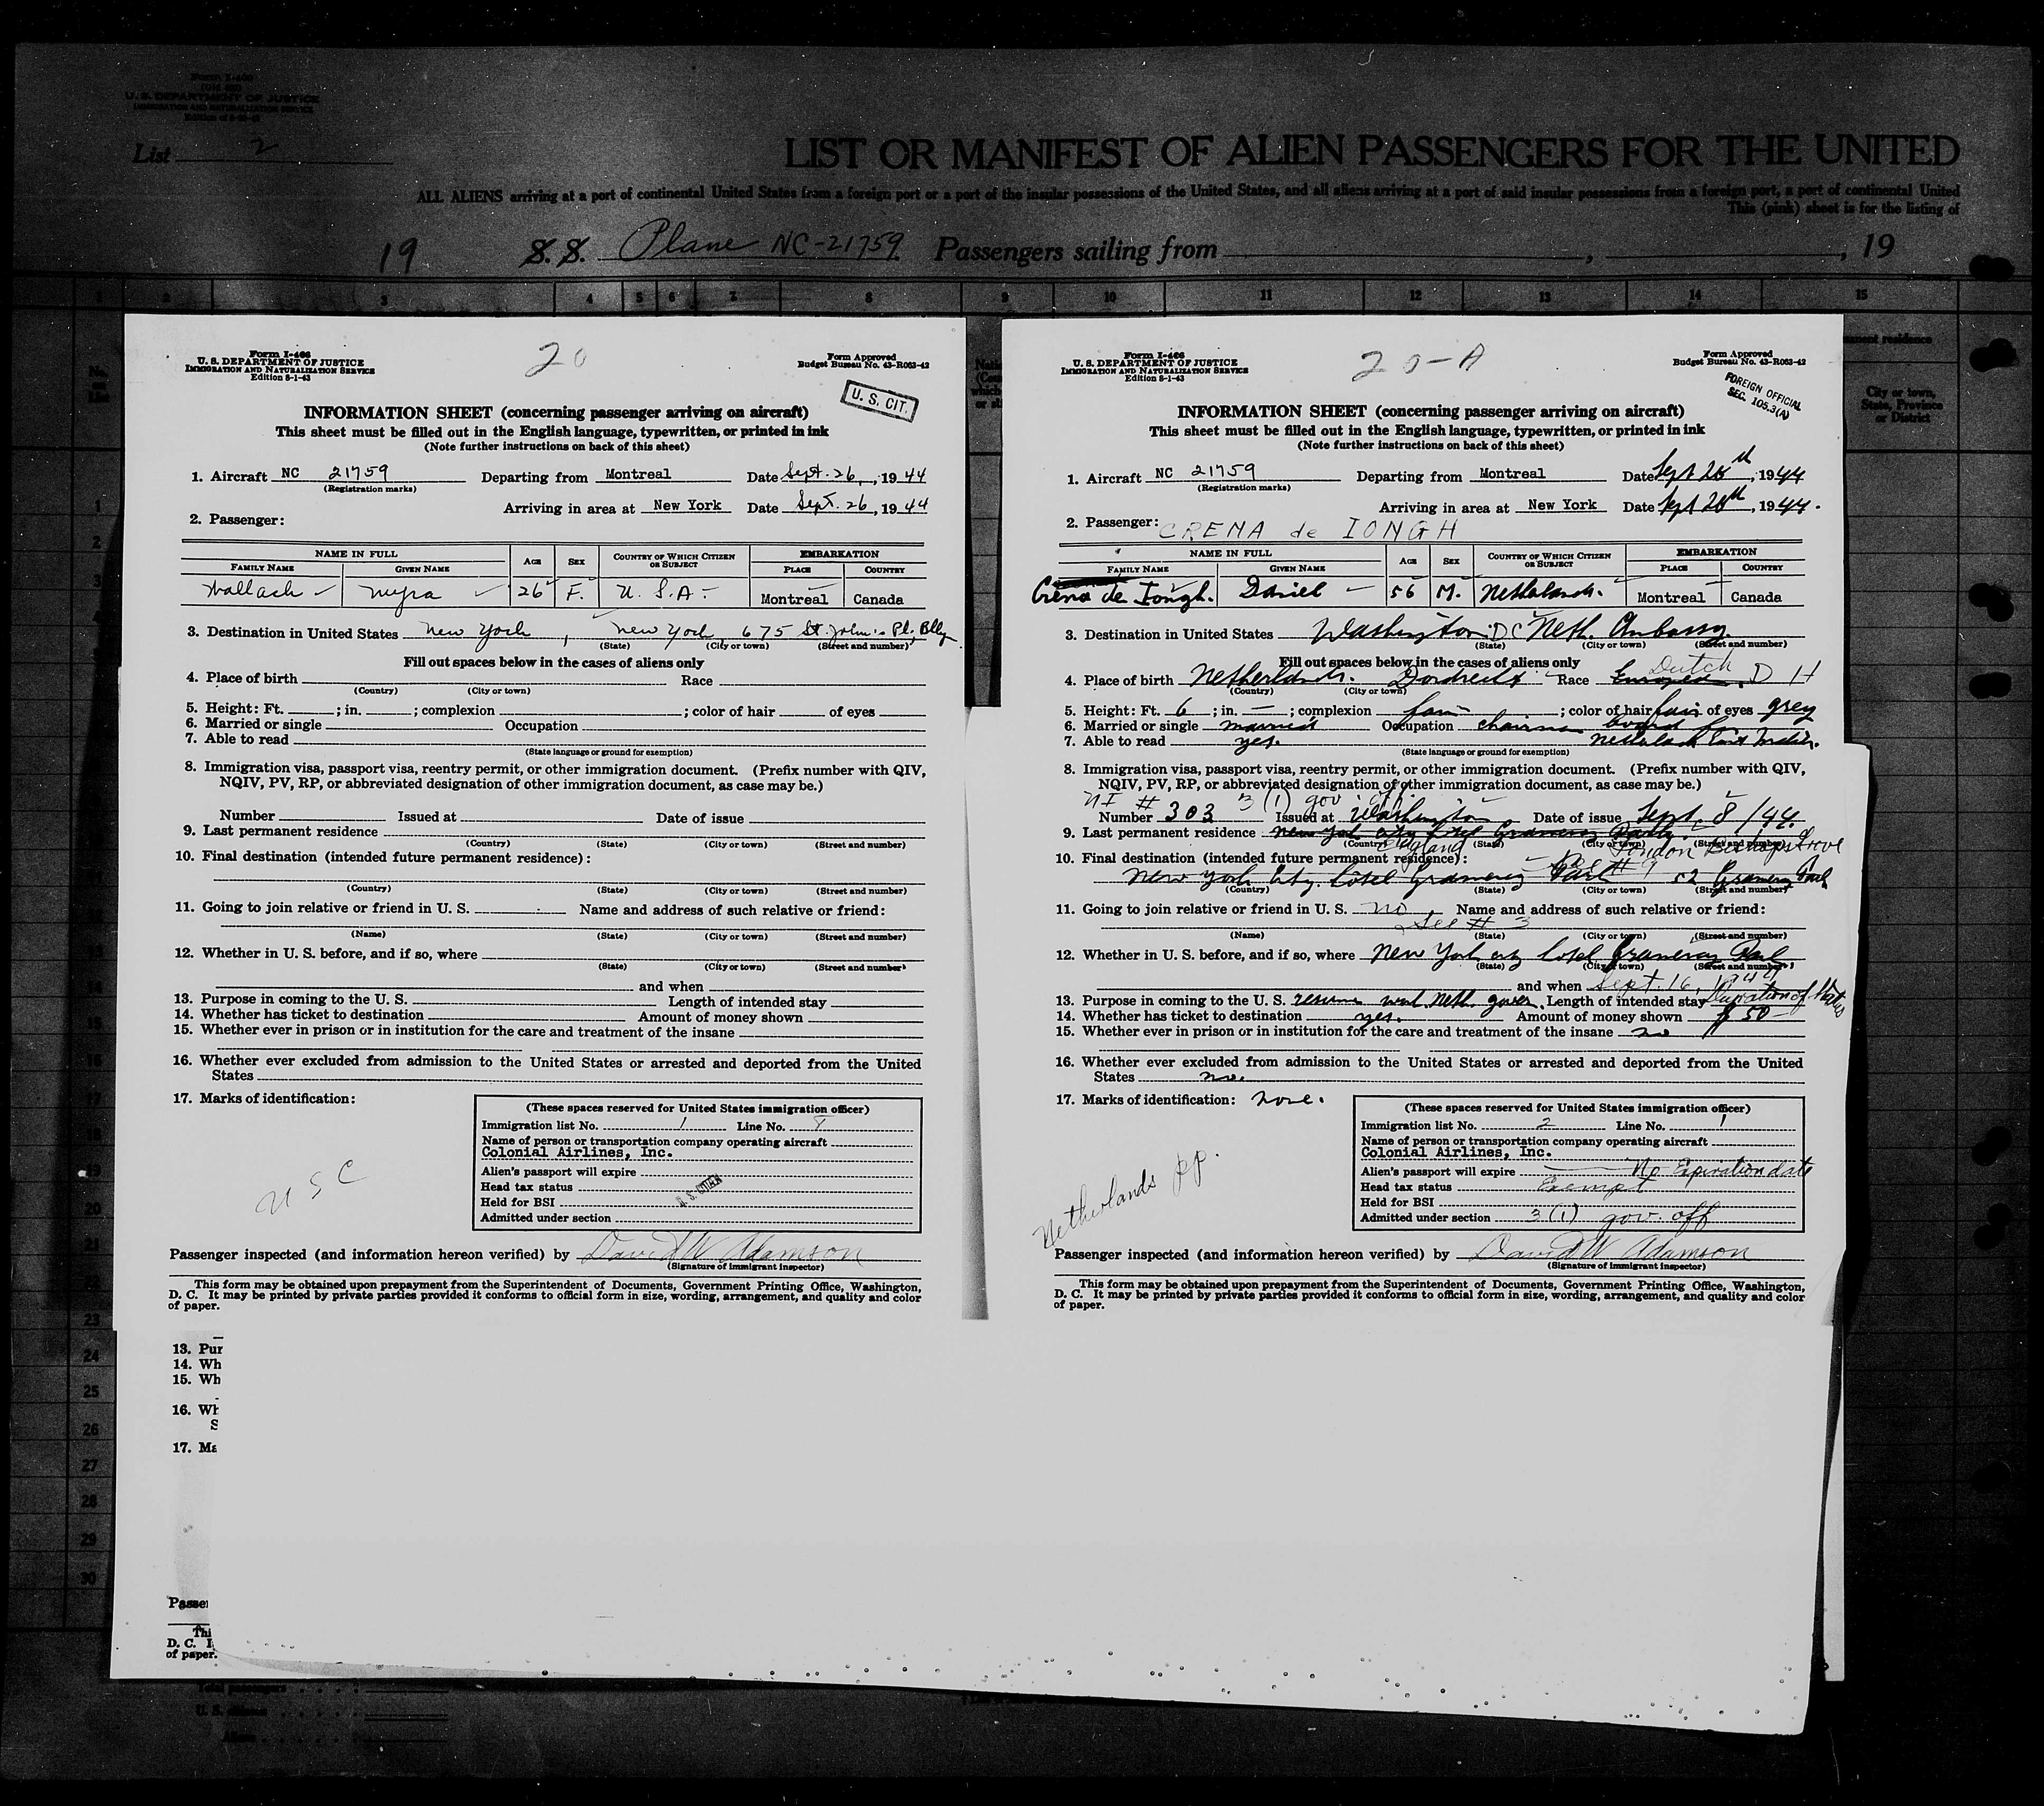 Form I-466
U. S. DEPARTMENT OF JUSTICE
IMMIGRATION AND NATURALIZATION SERVICE
List 2
LIST OR MANIFEST OF ALIEN PASSENGERS FOR THE UNITED
ALL ALIENS arriving at a port of continental United States from a foreign port or a port of the insular possessions of the United States, and all aliens arriving at a port of said insular possessions from a foreign port, a port of continental United
This (pink) sheet is for the listing of
19 S. S. Plane NC-21759 Passengers sailing from , , 19
1 2 3 4 5 6 7 8 9 10 11 12 13 14 15
Form I-466
U. S. DEPARTMENT OF JUSTICE
IMMIGRATION AND NATURALIZATION SERVICE
Edition 8-1-43
20
Form Approved
Budget Bureau No. 43-R063-42
U. S. CIT.
INFORMATION SHEET (concerning passenger arriving on aircraft)
This sheet must be filled out in the English language, typewritten, or printed in ink
(Note further instructions on back of this sheet)
1. Aircraft NC 21759 Departing from Montreal Date Sept. 26, 1944
(Registration marks)
Arriving in area at New York Date Sept. 26, 1944
2. Passenger:
NAME IN FULL AGE SEX COUNTRY OF WHICH CITIZEN OR SUBJECT EMBARKATION
FAMILY NAME GIVEN NAME PLACE COUNTRY
Wallach Myra 26 F. U. S. A. Montreal Canada
3. Destination in United States New York, New York, 675 St. John's Pl. Bklyn
(State) (City or town) (Street and number)
Fill out spaces below in the cases of aliens only
4. Place of birth Race
(Country) (City or town)
5. Height: Ft. ; in. ; complexion ; color of hair of eyes
6. Married or single Occupation
7. Able to read
(State language or ground for exemption)
8. Immigration visa, passport visa, reentry permit, or other immigration document. (Prefix number with QIV,
NQIV, PV, RP, or abbreviated designation of other immigration document, as case may be.)
Number Issued at Date of issue
9. Last permanent residence
(Country) (State) (City or town) (Street and number)
10. Final destination (intended future permanent residence):
(Country) (State) (City or town) (Street and number)
11. Going to join relative or friend in U. S. Name and address of such relative or friend:
(Name) (State) (City or town) (Street and number)
12. Whether in U. S. before, and if so, where
(State) (City or town) (Street and number)
and when
13. Purpose in coming to the U. S. Length of intended stay
14. Whether has ticket to destination Amount of money shown
15. Whether ever in prison or in institution for the care and treatment of the insane
16. Whether ever excluded from admission to the United States or arrested and deported from the United
States
17. Marks of identification:
U S C
(These spaces reserved for United States immigration officer)
Immigration list No. 1 Line No. 8
Name of person or transportation company operating aircraft
Colonial Airlines, Inc.
Alien's passport will expire
Head tax status
Held for BSI
Admitted under section
Passenger inspected (and information hereon verified) by David W Adamson
(Signature of immigrant inspector)
This form may be obtained upon prepayment from the Superintendent of Documents, Government Printing Office, Washington,
D. C. It may be printed by private parties provided it conforms to official form in size, wording, arrangement, and quality and color
of paper.
13. Pur
14. Wh
15. Wh
16. Wh
S
17. Ma
Passen
Thi
D. C. I
of paper.
Form I-466
U. S. DEPARTMENT OF JUSTICE
IMMIGRATION AND NATURALIZATION SERVICE
Edition 8-1-43
20-A
Form Approved
Budget Bureau No. 43-R063-42
FOREIGN OFFICIAL
SEC. 105.3(A)
INFORMATION SHEET (concerning passenger arriving on aircraft)
This sheet must be filled out in the English language, typewritten, or printed in ink
(Note further instructions on back of this sheet)
1. Aircraft NC 21759 Departing from Montreal Date Sept 26th, 1944
(Registration marks)
Arriving in area at New York Date Sept 26th, 1944.
2. Passenger: CRENA de IONGH
NAME IN FULL AGE SEX COUNTRY OF WHICH CITIZEN OR SUBJECT EMBARKATION
FAMILY NAME GIVEN NAME PLACE COUNTRY
Crena de Iongh. Daniel 56 M. Netherlands. Montreal Canada
3. Destination in United States Washington D C Neth. Embassy.
(State) (City or town) (Street and number)
Fill out spaces below in the cases of aliens only
4. Place of birth Netherlands. Dordrecht Race European Dutch D H
(Country) (City or town)
5. Height: Ft. 6 ; in. — ; complexion fair ; color of hair fair of eyes grey
6. Married or single married Occupation chairman board for
7. Able to read yes. Netherlands East Indies.
(State language or ground for exemption)
8. Immigration visa, passport visa, reentry permit, or other immigration document. (Prefix number with QIV,
NQIV, PV, RP, or abbreviated designation of other immigration document, as case may be.)
NI # 3 (1) gov. off.
Number 303 Issued at Washington Date of issue Sept. 8/44.
9. Last permanent residence New York City Hotel Gramercy Park
(Country) (State) (City or town) (Street and number)
England London
10. Final destination (intended future permanent residence): # 9
New York City. Hotel Gramercy Park 52 Gramercy Park
(Country) (State) (City or town) (Street and number)
11. Going to join relative or friend in U. S. no Name and address of such relative or friend:
See # 3
(Name) (State) (City or town) (Street and number)
12. Whether in U. S. before, and if so, where New York city hotel Gramercy Park
(State) (City or town) (Street and number)
and when Sept. 16, 1944
13. Purpose in coming to the U. S. resume work Neth. gover. Length of intended stay Duration of Status
14. Whether has ticket to destination yes. Amount of money shown $ 50 —
15. Whether ever in prison or in institution for the care and treatment of the insane no
16. Whether ever excluded from admission to the United States or arrested and deported from the United
States no.
17. Marks of identification: none.
Netherlands pp.
(These spaces reserved for United States immigration officer)
Immigration list No. 2 Line No. 1
Name of person or transportation company operating aircraft
Colonial Airlines, Inc.
Alien's passport will expire No Expiration date
Head tax status Exempt
Held for BSI
Admitted under section 3 (1) gov. off
Passenger inspected (and information hereon verified) by David W Adamson
(Signature of immigrant inspector)
This form may be obtained upon prepayment from the Superintendent of Documents, Government Printing Office, Washington,
D. C. It may be printed by private parties provided it conforms to official form in size, wording, arrangement, and quality and color
of paper.
City or town,
State, Province
or District
Total passengers
U. S. citizens
Aliens